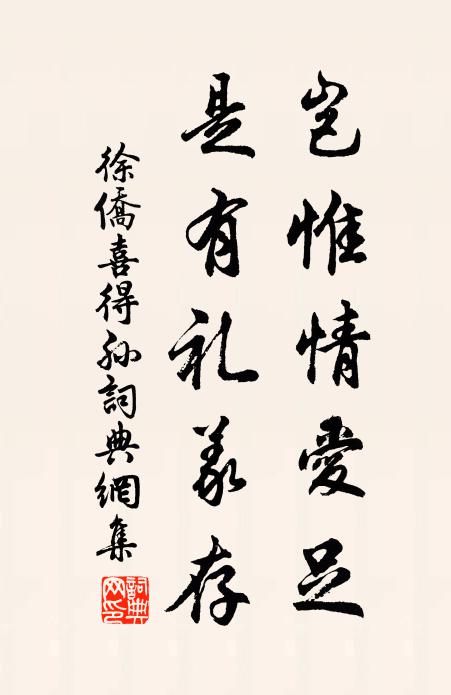 岂惟情愛足
是有礼義存
徐僑喜得孙詞典網集
詞典网印